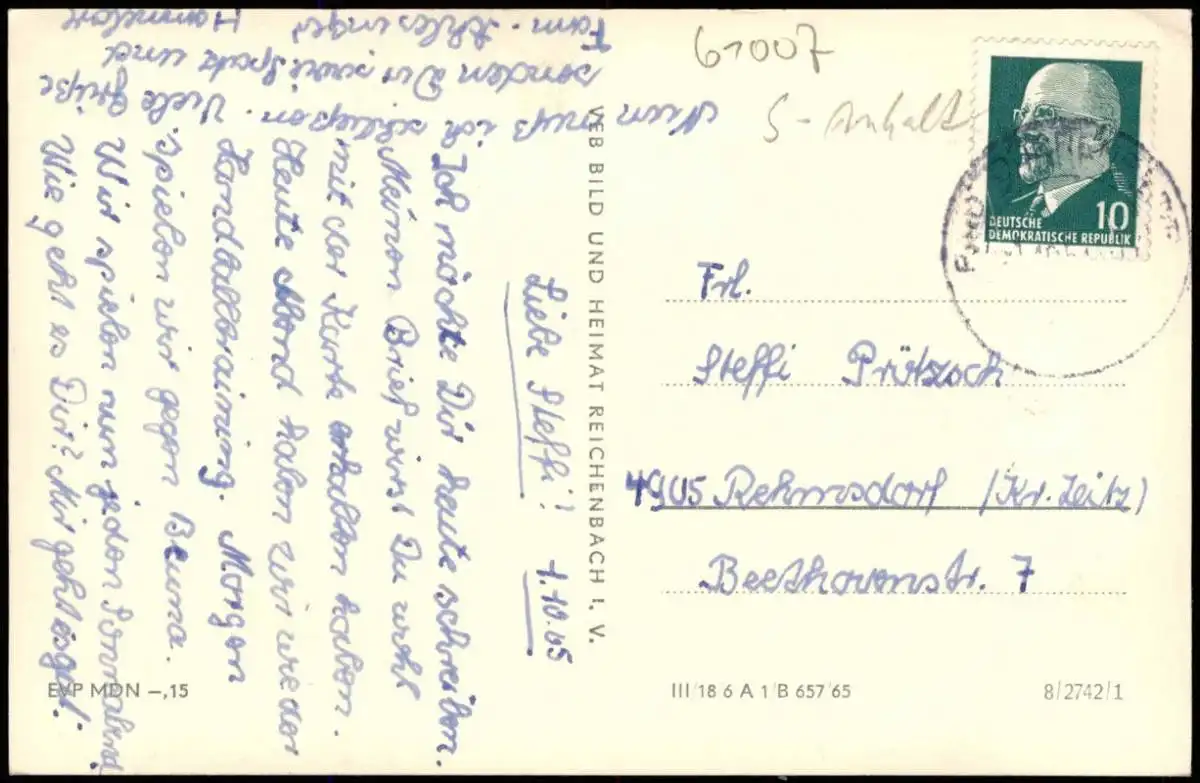 61007
S-Anhalt
DEUTSCHE
DEMOKRATISCHE REPUBLIK
10
Liebe Steffi! 1.10.65
Ich möchte Dir heute schreiben.
Meinen Brief wirst Du wohl
mit der Karte erhalten haben.
Heute Abend haben wir wieder
Handballtraining. Morgen
spielen wir gegen Beuna.
Wir spielen nun jeden Sonnabend.
Wie geht es Dir? Mir geht es gut.
Nun muß ich schließen. Viele Grüße
senden Dir und
Fam.
VEB BILD UND HEIMAT REICHENBACH I. V.
Frl.
Steffi Prötzsch
4905 Rehmsdorf (Kr. Zeitz)
Beethovenstr. 7
EVP MDN –,15
III/18 6 A 1/B 657/65
8/2742/1